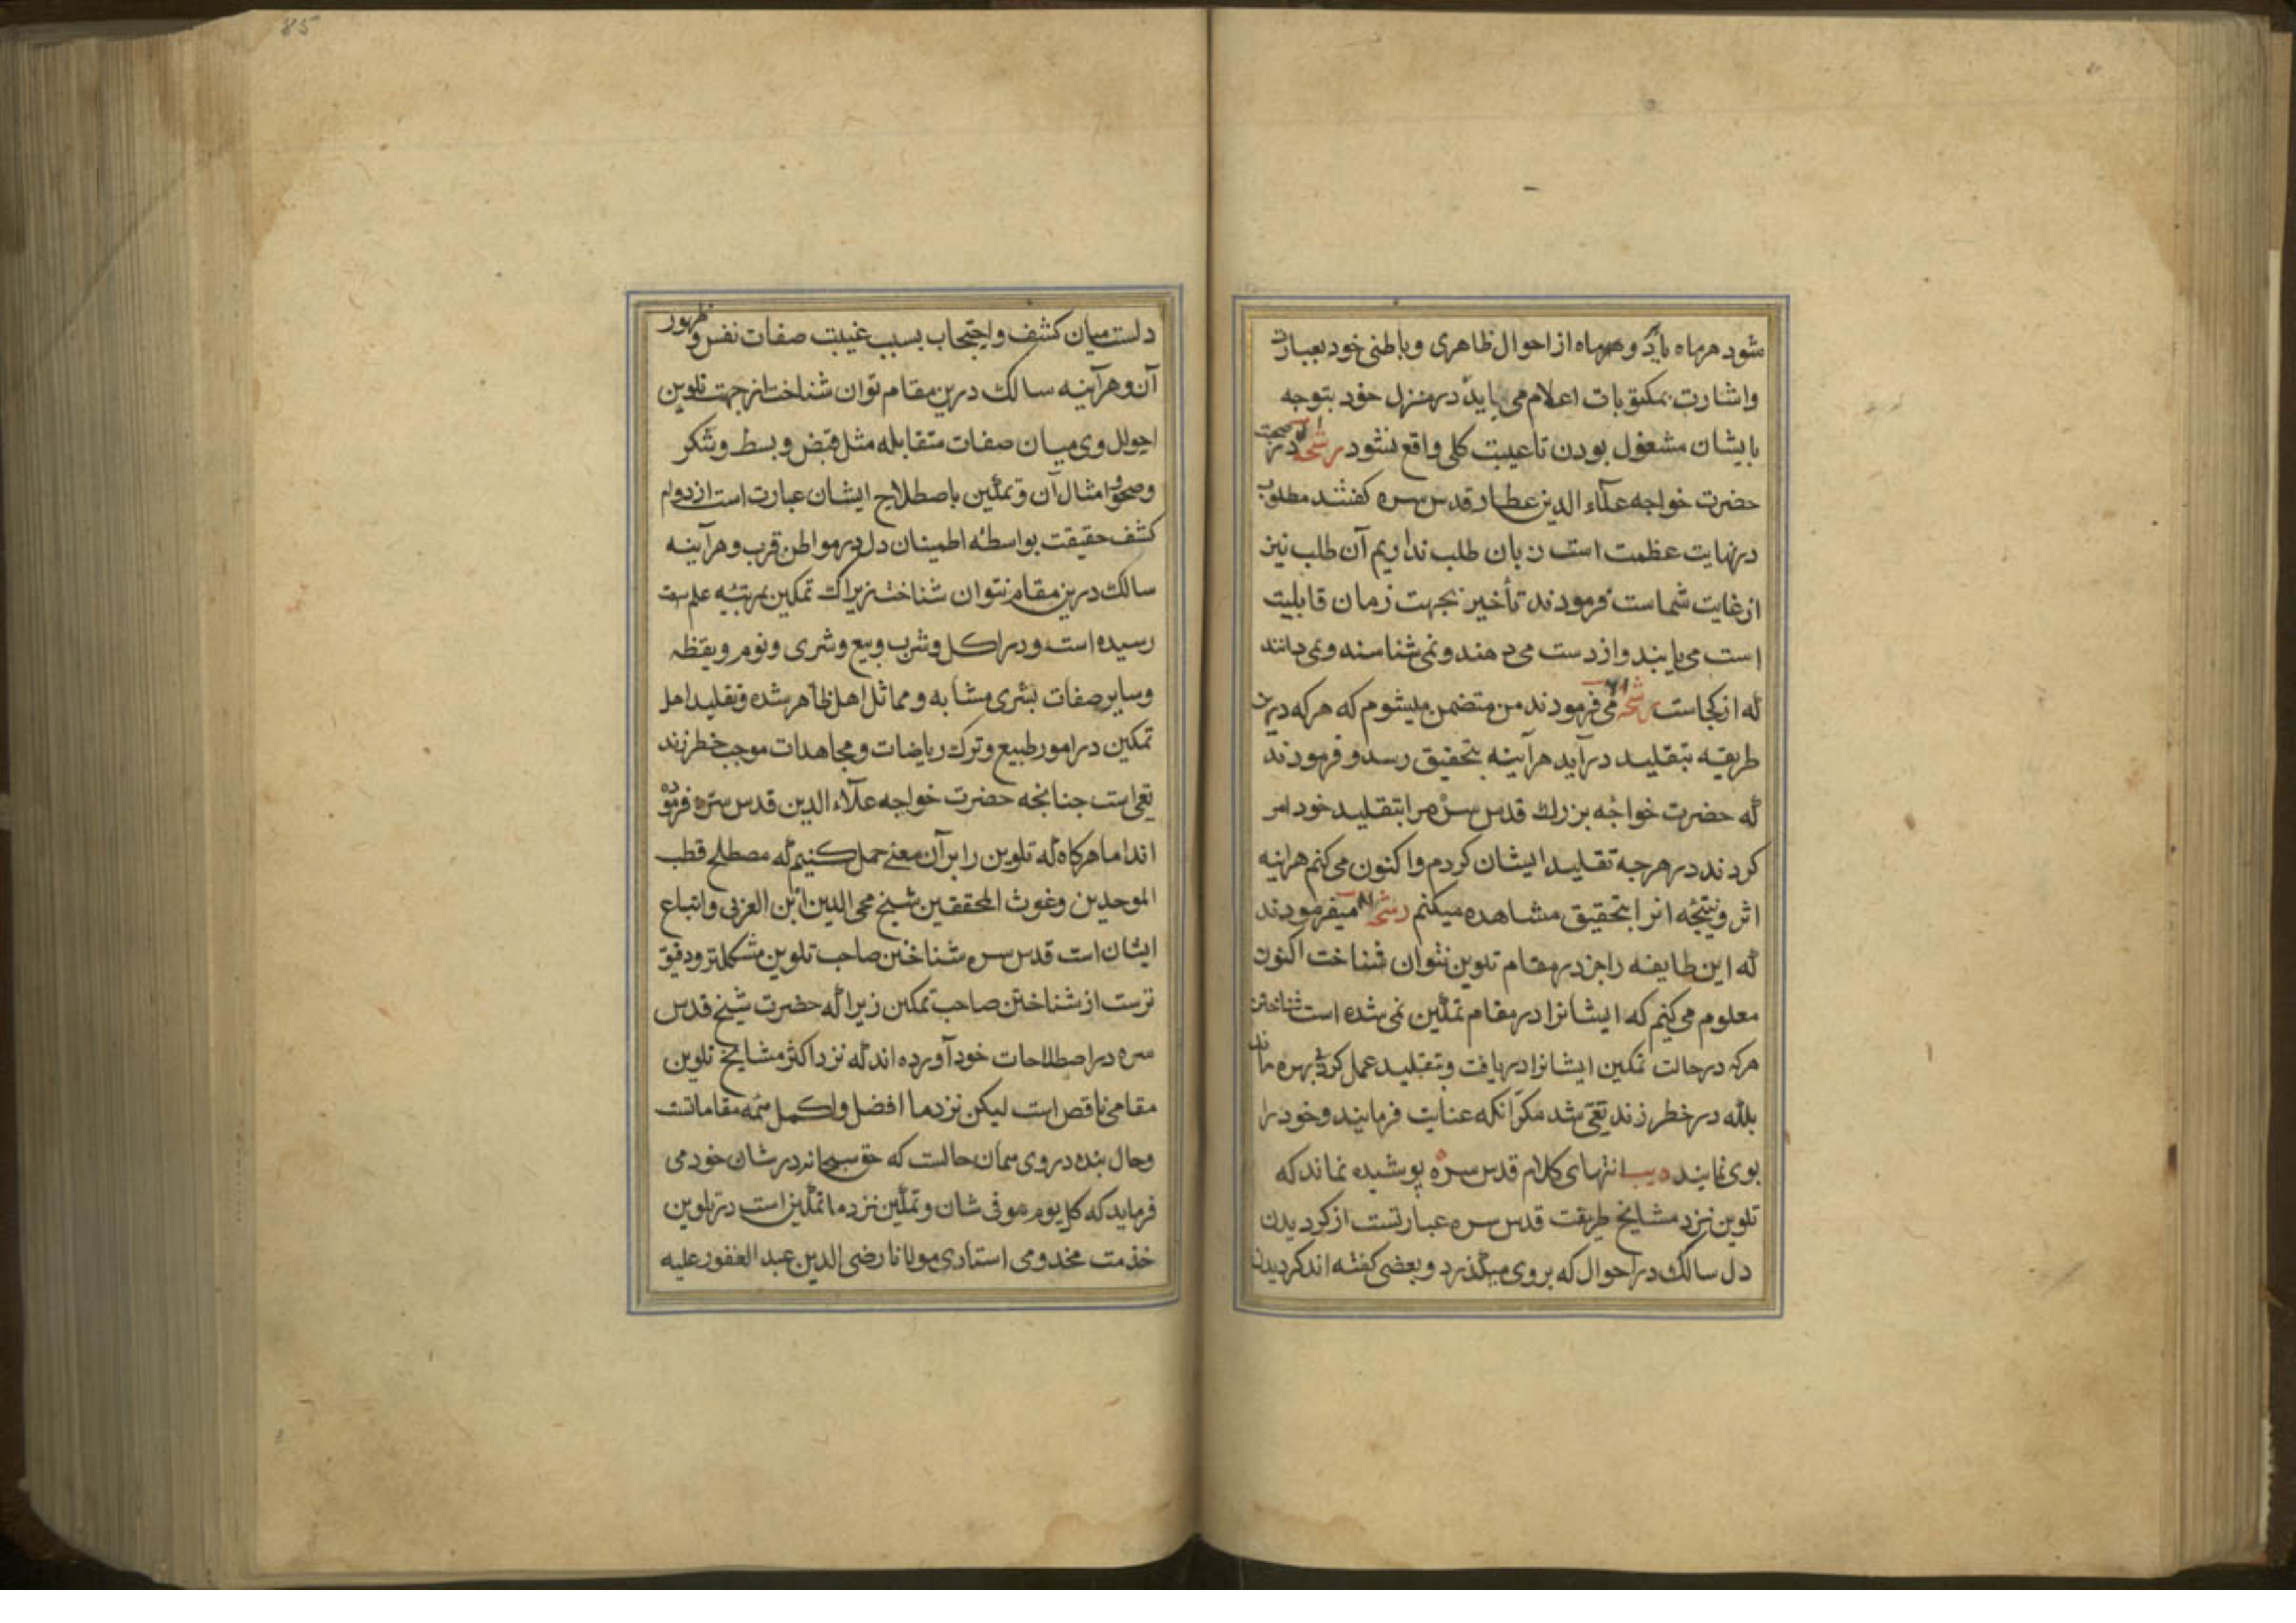 شود هرماه یا دو هرماه از احوال ظاهری و باطنی خود بعبارت
واشارت بمکتوبات اعلام می باید در منزل خود بتوجه
بایشان مشغول بودن تا غیبت کلی واقع نشود رشحه در صحبت
حضرت خواجه علاء الدین عطار قدس سره کفتند مطلوب
درنهایت عظمت است زبان طلب نداریم آن طلب نیز
از غایت شماست فرمودند تأخیر بجهت زمان قابلیت
است می یابند و از دست می دهند و نمی شناسند و نمی دانند
که از کجاست رشحه می فرمودند من متضمن میشوم که هرکه درین
طریقه بتقلید درآید هرآینه بتحقیق رسد و فرمودند
که حضرت خواجه بزرك قدس سره مرا بتقلید خود امر
کردند در هرجه تقلید ایشان کردم واکنون می کنم هراینه
اثر و نتیجه انرا بتحقیق مشاهده میکنم رشحه میفرمودند
که این طایفه را جز در مقام تلوین نتوان شناخت اکنون
معلوم می کنم که ایشانرا در مقام تمکین نمی شده است شناختن
هرکه در حالت تمکین ایشانرا دریافت و بتقلید عمل کرد بی بهره ماند
بلکه در خطر زندیقی شد مکر انکه عنایت فرمایند و خود را
بوی نمایند انتهای کلام قدس سره پوشیده نماند که
تلوین نزد مشایخ طریقت قدس سره عبارتست از کردیدن
دل سالك در احوال که بروی میکذرد و بعضی کفته اند کردیدن
85
دلست میان کشف و احتجاب بسبب غیبت صفات نفس و ظهور
آن و هرآینه سالك درین مقام توان شناخت از جهت تلوین
احوال وی میان صفات متقابله مثل قبض و بسط و سکر
وصحو و امثال آن و تمکین باصطلاح ایشان عبارت است از دوام
کشف حقیقت بواسطه اطمینان دل در مواطن قرب و هرآینه
سالك درین مقام نتوان شناخت زیراك تمکین بمرتبه علم
رسیده است و در اکل و شرب و بیع و شری و نوم و یقظه
وسایر صفات بشری مشابه و مماثل اهل ظاهر شده و تقلید اهل
تمکین در امور طبیع و ترك ریاضات و مجاهدات موجب خطر زند
یقی است جنانجه حضرت خواجه علاء الدین قدس سره فرموده
اند اما هرکاه که تلوین را بر آن معنی حمل کنیم که مصطلح قطب
الموحدین و غوث المحققین شیخ محی الدین ابن العربی و اتباع
ایشان است قدس سره شناختن صاحب تلوین مشکلتر و دقیق
ترست از شناختن صاحب تمکین زیرا که حضرت شیخ قدس
سره در اصطلاحات خود آورده اند که نزد اکثر مشایخ تلوین
مقامی ناقص است لیکن نزد ما افضل و اکمل همه مقاماتست
وحال بنده در وی همان حالست که حق سبحانه در شان خود می
فرماید که کل یوم هو فی شان و تمکین نزد ما تمکین است در تلوین
خدمت مخدومی استادی مولانا رضی الدین عبد الغفور علیه